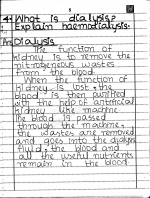 4) What is dialysis?
Explain haemodialysis.
Ans Dialysis
The function of
kidney is to remove the
nitrogeneous wastes
from the blood.
When the function of
kidney is lost, the
blood is then purified
with the help of artificial
kidney like machine.
The blood is passed
through the machine,
the wastes are removed
and goes into the dialysis
fluid, the blood and
all the useful nutrients
remain in the blood